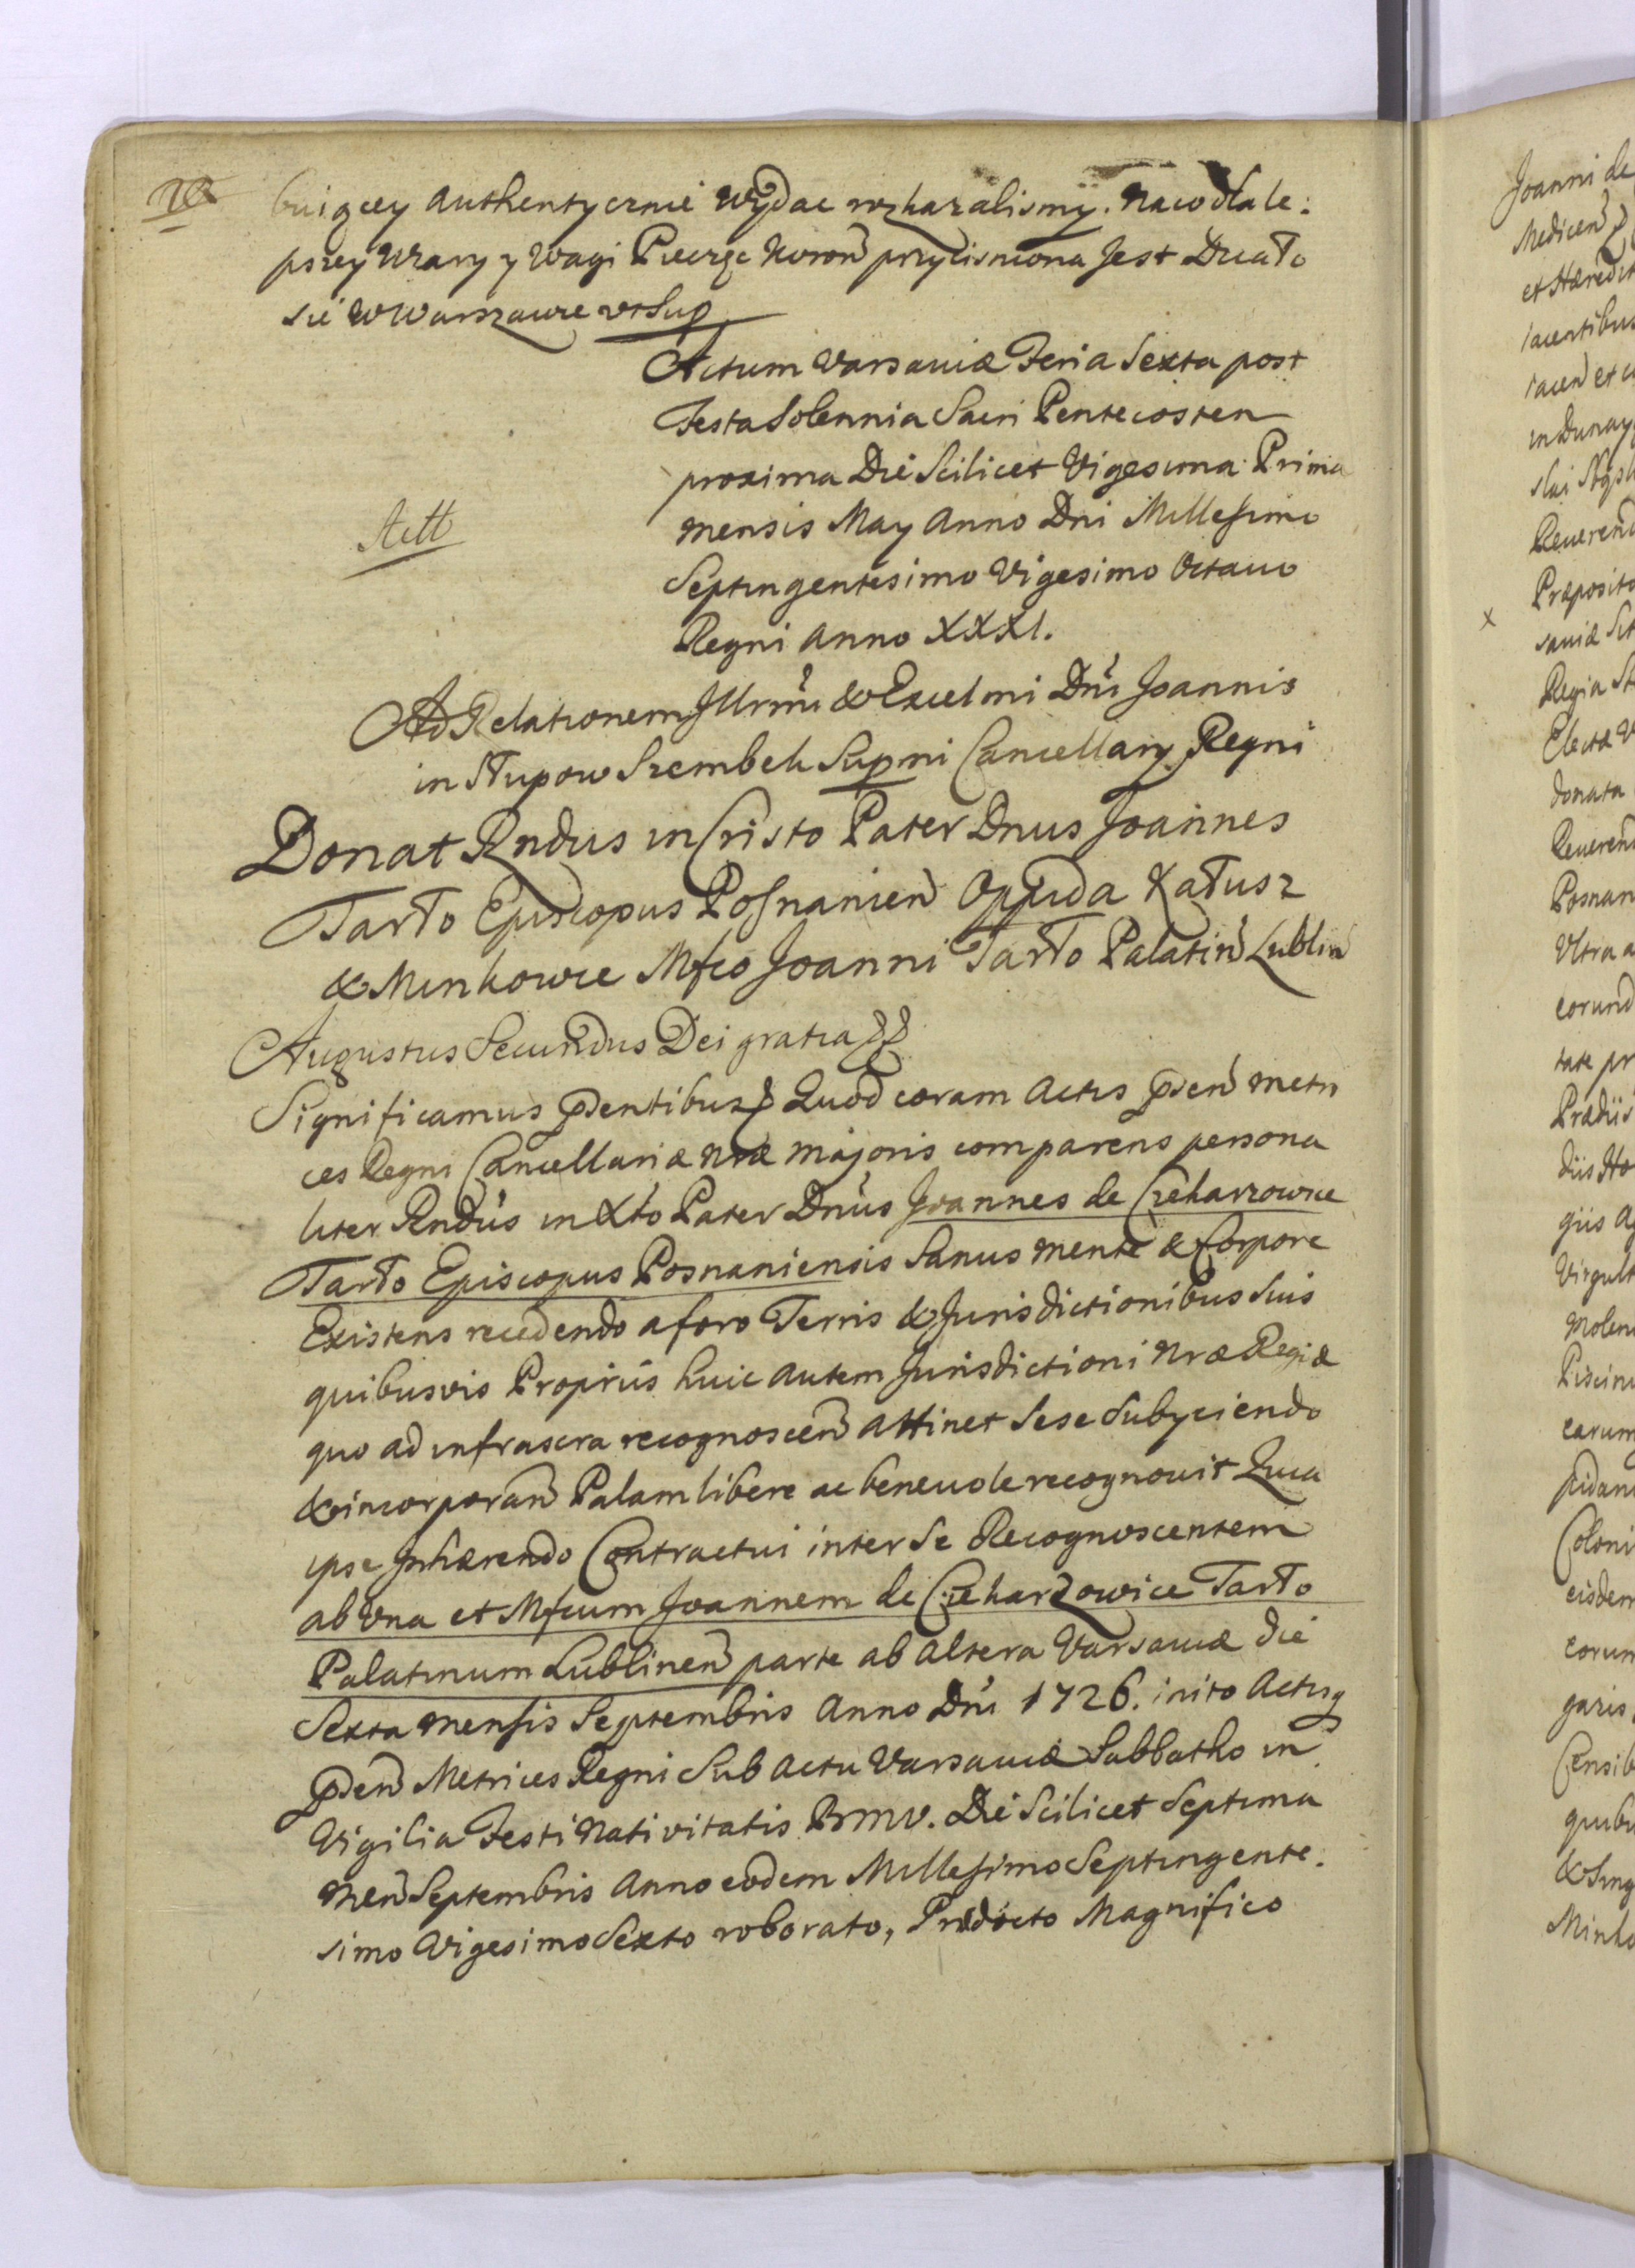 buiącey authentycznie wydac rozkazalismy. Na co dla le:
pszey wiary y wagi Pieczęc Koron przycisniona jest Działo
się w Warszawie ut Sup
Actum Varsaviæ Feria Sexta post
Festa Solennia Sacri Pentecosten
proxima Die Scilicet Vigesima Prima
mensis May Anno Dni Millesimo
Septingentesimo Vigesimo Octavo
Regni Anno XXXI.
Ad Relationem Illrmi & Excelmi Dni Joannis
in Słupow Szembek Supmi Cancellarij Regni
Donat Rndus in Cristo Pater Dnus Joannes
Tarło Episcopus Posnanien Oppida Katusz
& Minkowce Mfco Joanni Tarło Palatin Lublin
Augustus Secundus Dei gratia
Significamus pntibus Quod coram Actis psen metri
ces Regni Cancellariæ nræ majoris comparens persona
liter Rndus in Xto Pater Dnus Joannes de Czekarzowice
Tarło Episcopus Posnaniensis Sanus mente & Corpore
Existens recedendo a foro Terris & Jurisdictionibus Suis
quibusvis Propriis huic autem Jurisdictioni nræ Regiæ
quo ad infrascra recognoscen attinet Sese Subyciendo
& incorporan Palam libere ac benevole recognovit Quia
ipse Inhærendo Contractui inter Se Recognoscentem
ab Una et Mfcum Joannem de Czekarzowice Tarło
Palatinum Lublinen parte ab altera Varsaviæ die
Sexta mensis Septembris Anno Dni 1726. inito Actisq
psen Metrices Regni Sub actu Varsaviæ Sabbatho in
Vigilia Festi Nativitatis BMV. Die Scilicet Septima
men Septembris Anno eodem Millesimo Septingente:
simo Vigesimo Sexto roborato, Prædicto Magnifico
Joanni de
Medicen
et Hæredit
iacentibus
iacen et
in Dunay
Reverend
x Præposito
saviæ
Regia
Electæ
donata
Reverend
Posnan
Ultra a
eorund
tate pr
Prædiis
diis Ho
giis Ag
Virgult
Molen
Piscin
earum
pidan
Coloni
eisdem
eorum
garis
Censib
quibu
& Sing
Minko